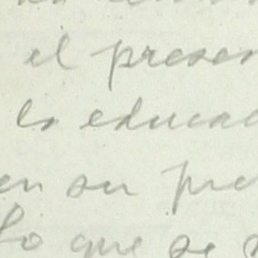 el preser
la educac
en su pre
lo que se